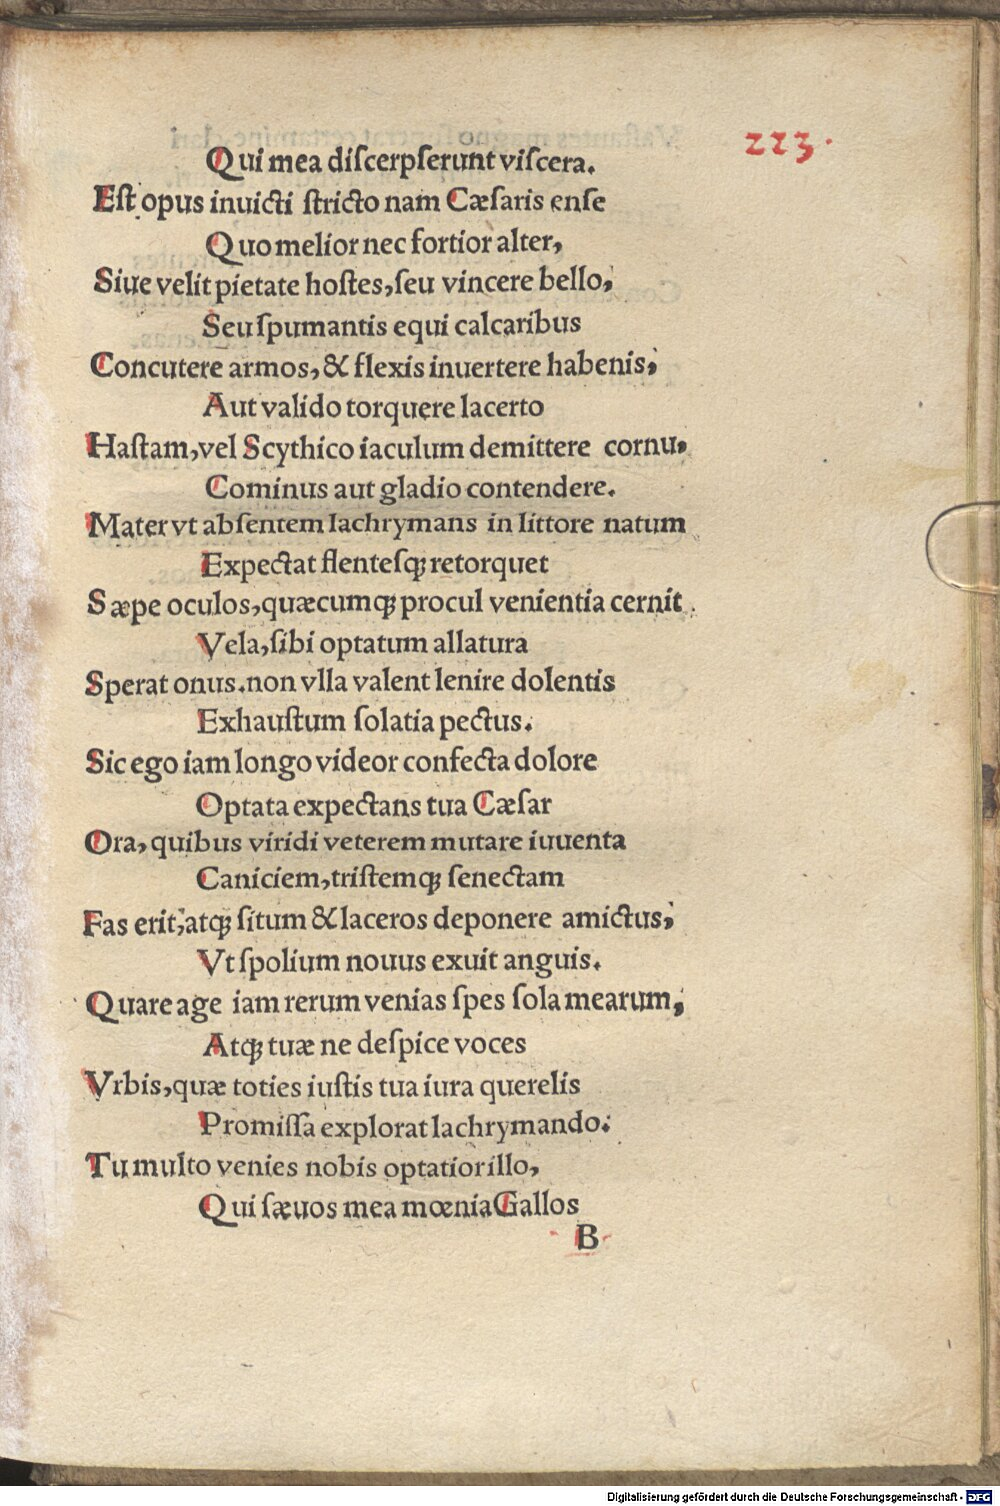 223.
Qui mea diſcerpſerunt viſcera.
Eſt opus inuicti ſtricto nam Cæſaris enſe
Quo melior nec fortior alter,
Siue velit pietate hoſtes,ſeu vincere bello,
Seu ſpumantis equi calcaribus
Concutere armos,& flexis inuertere habenis,
Aut valido torquere lacerto
Haſtam,vel Scythico iaculum demittere cornu,
Cominus aut gladio contendere.
Mater vt abſentem lachrymans in littore natum
Expectat flenteſqꝫ retorquet
Sæpe oculos,quæcumqꝫ procul venientia cernit
Vela,ſibi optatum allatura
Sperat onus.non vlla valent lenire dolentis
Exhauſtum ſolatia pectus.
Sic ego iam longo videor confecta dolore
Optata expectans tua Cæſar
Ora,quibus viridi veterem mutare iuuenta
Caniciem,triſtemqꝫ ſenectam
Fas erit,atqꝫ ſitum & laceros deponere amictus,
Vt ſpolium nouus exuit anguis.
Quare age iam rerum venias ſpes ſola mearum,
Atqꝫ tuæ ne deſpice voces
Vrbis,quæ toties iuſtis tua iura querelis
Promiſſa explorat lachrymando.
Tu multo venies nobis optatior illo,
Qui ſæuos mea mœnia Gallos
B
Digitalisierung gefördert durch die Deutsche Forschungsgemeinschaft - DFG